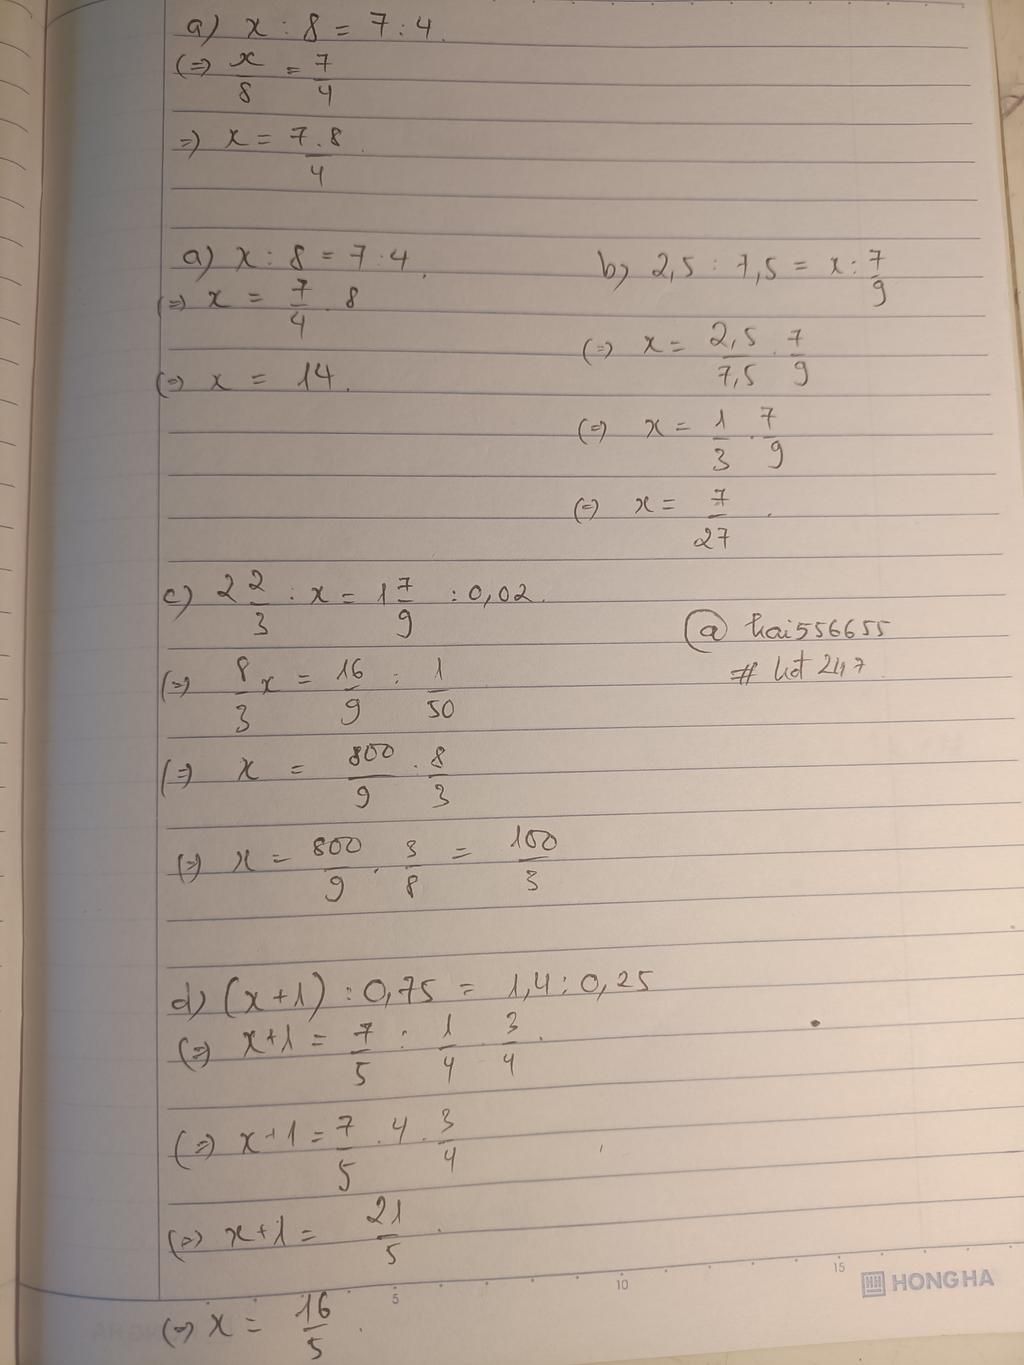 a) x : 8 = 7 : 4.
(=) x/8 = 7/4
=) x = 7.8/4
a) x : 8 = 7 : 4.
(=) x = 7/4 . 8
(=) x = 14.
b) 2,5 : 7,5 = x : 7/9
(=) x = 2,5/7,5 . 7/9
(=) x = 1/3 . 7/9
(=) x = 7/27.
c) 2 2/3 : x = 1 7/9 : 0,02.
(=) 8/3 x = 16/9 : 1/50
(=) x = 800/9 . 8/3
(=) x = 800/9 . 3/8 = 100/3
@ hai556655
# hot 247
d) (x+1) : 0,75 = 1,4 : 0,25
(=) x+1 = 7/5 : 1/4 . 3/4.
(=) x+1 = 7/5 . 4 . 3/4
(=) x+1 = 21/5.
(=) x = 16/5.
5 10 15
HONG HA